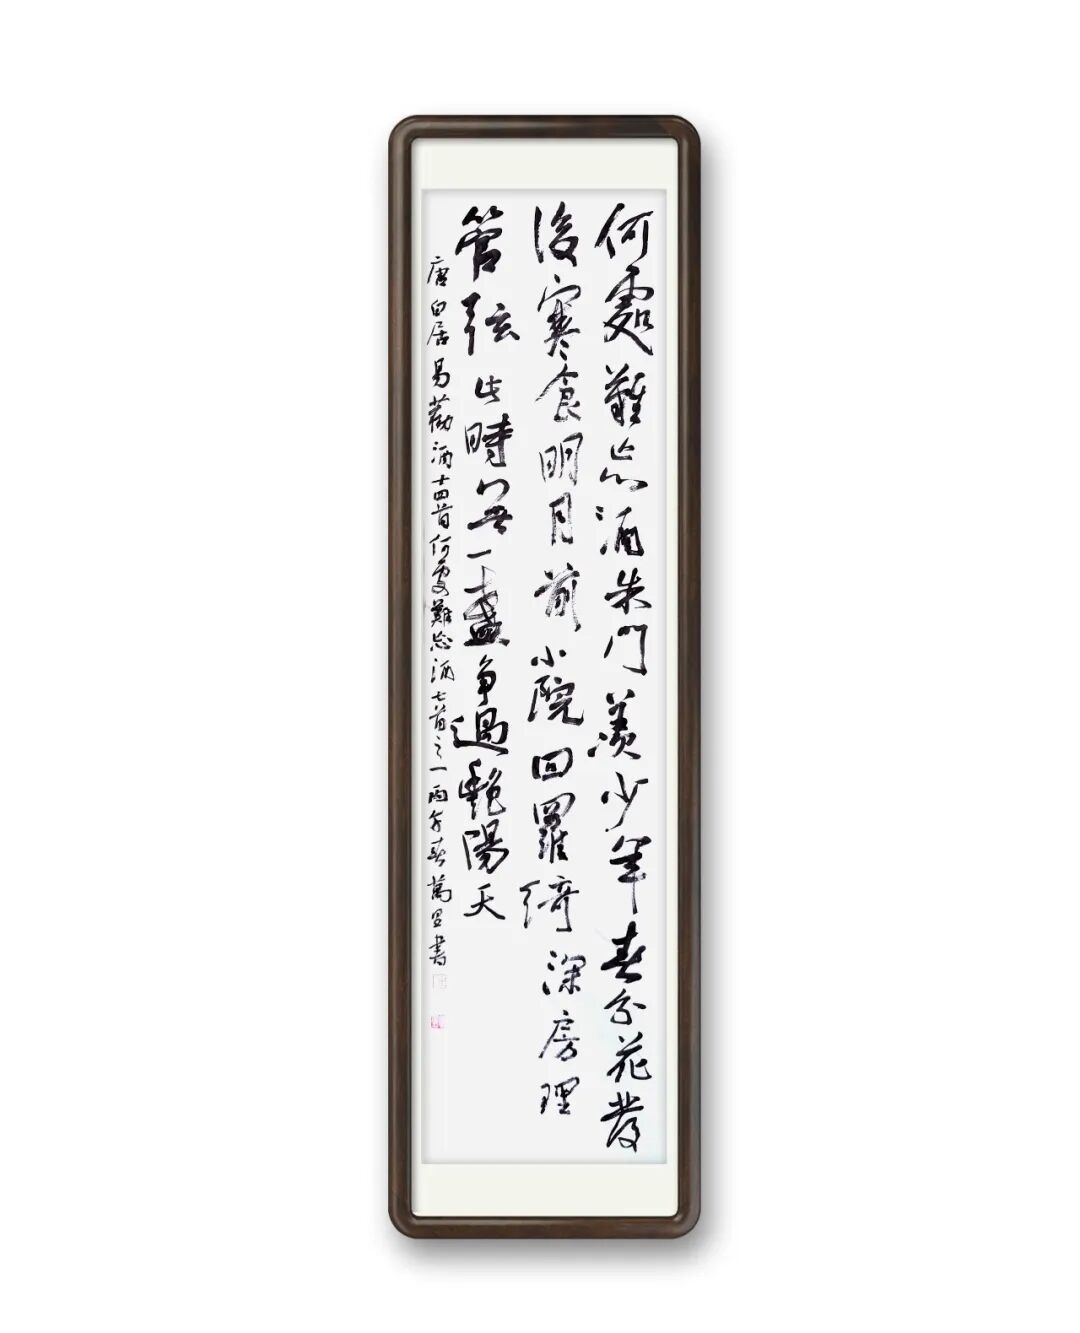 何處難忘酒朱門羨少年春分花發
後寒食明月前小院回羅綺深房理
管弦此時無一盞爭過艷陽天
唐白居易勸酒十四首何處難忘酒七首之一丙午春萬里書